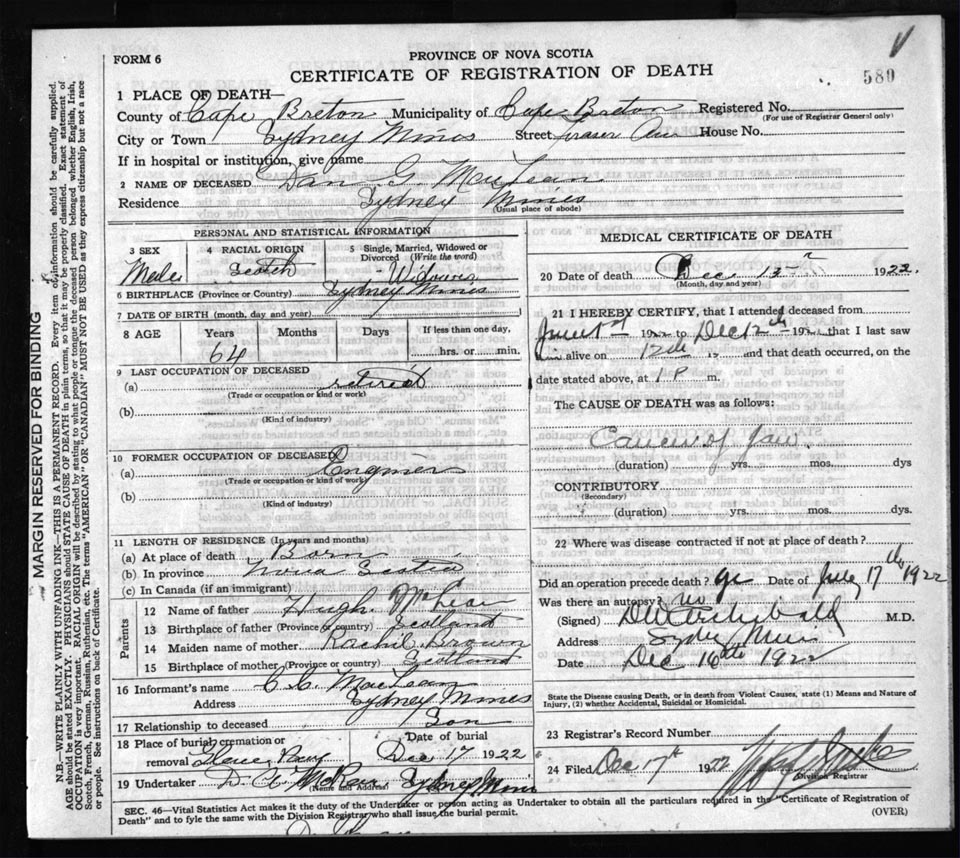 FORM 6
PROVINCE OF NOVA SCOTIA
CERTIFICATE OF REGISTRATION OF DEATH
589
1 PLACE OF DEATH—
County of Cape Breton Municipality of Cape Breton Registered No.
(For use of Registrar General only)
City or Town Sydney Mines Street Fraser Ave House No.
If in hospital or institution, give name
2 NAME OF DECEASED Dan G. MacLean
Residence Sydney Mines
(Usual place of abode)
PERSONAL AND STATISTICAL INFORMATION
3 SEX 4 RACIAL ORIGIN 5 Single, Married, Widowed or Divorced (Write the word)
Male Scotch Widower
6 BIRTHPLACE (Province or Country) Sydney Mines
7 DATE OF BIRTH (month, day and year)
8 AGE Years Months Days If less than one day,
64 hrs. or min.
9 LAST OCCUPATION OF DECEASED
(a) retired
(Trade or occupation or kind or work)
(b)
(Kind of industry)
10 FORMER OCCUPATION OF DECEASED
(a) Engineer
(Trade or occupation or kind of work)
(b)
(Kind of industry)
11 LENGTH OF RESIDENCE (In years and months)
(a) At place of death Born
(b) In province Nova Scotia
(c) In Canada (if an immigrant)
Parents
12 Name of father Hugh McLean
13 Birthplace of father (Province or country) Scotland
14 Maiden name of mother Rachil Brown
15 Birthplace of mother (Province or country) Scotland
16 Informant's name C. C. MacLean
Address Sydney Mines
17 Relationship to deceased Son
18 Place of burial, cremation or removal Date of burial
Dec 17 1922
19 Undertaker D. A. McRae Sydney Mines
(Name and Address)
MEDICAL CERTIFICATE OF DEATH
20 Date of death Dec. 12th 1922.
(Month, day and year)
21 I HEREBY CERTIFY, that I attended deceased from
June 1st 1922 to Dec 12th 1922 that I last saw
him alive on 12th and that death occurred, on the
date stated above, at 1 P m.
The CAUSE OF DEATH was as follows:
Cancer of Jaw.
(duration) yrs. mos. dys
CONTRIBUTORY
(Secondary)
(duration) yrs. mos. dys.
22 Where was disease contracted if not at place of death?
Did an operation precede death? yes Date of July 17th 1922
Was there an autopsy? no
(Signed) Archibald M.D.
Address Sydney Mines
Date Dec 16th 1922
State the Disease causing Death, or in death from Violent Causes, state (1) Means and Nature of
Injury, (2) whether Accidental, Suicidal or Homicidal.
23 Registrar's Record Number
24 Filed Dec 17th 1922
Division Registrar
SEC. 46—Vital Statistics Act makes it the duty of the Undertaker or person acting as Undertaker to obtain all the particulars required in the "Certificate of Registration of
Death" and to fyle the same with the Division Registrar who shall issue the burial permit.
(OVER)
MARGIN RESERVED FOR BINDING
N.B.—WRITE PLAINLY WITH UNFADING INK—THIS IS A PERMANENT RECORD. Every item of information should be carefully supplied.
AGE should be stated EXACTLY. PHYSICIANS should STATE CAUSE OF DEATH in plain terms, so that it may be properly classified. Exact statement of
OCCUPATION is very important. RACIAL ORIGIN will be described by stating to what people or tongue the deceased person belonged whether English, Irish,
Scotch, French, German, Russian, Ruthenian, etc. The terms "AMERICAN" or "CANADIAN" MUST NOT BE USED as they express citizenship but not a race
or people. See instructions on back of Certificate.